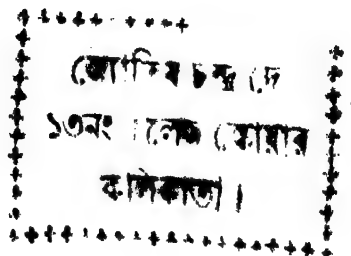 জ্যোতিষ চন্দ্র দে
১৩নং কলেজ স্কোয়ার
কলিকাতা।